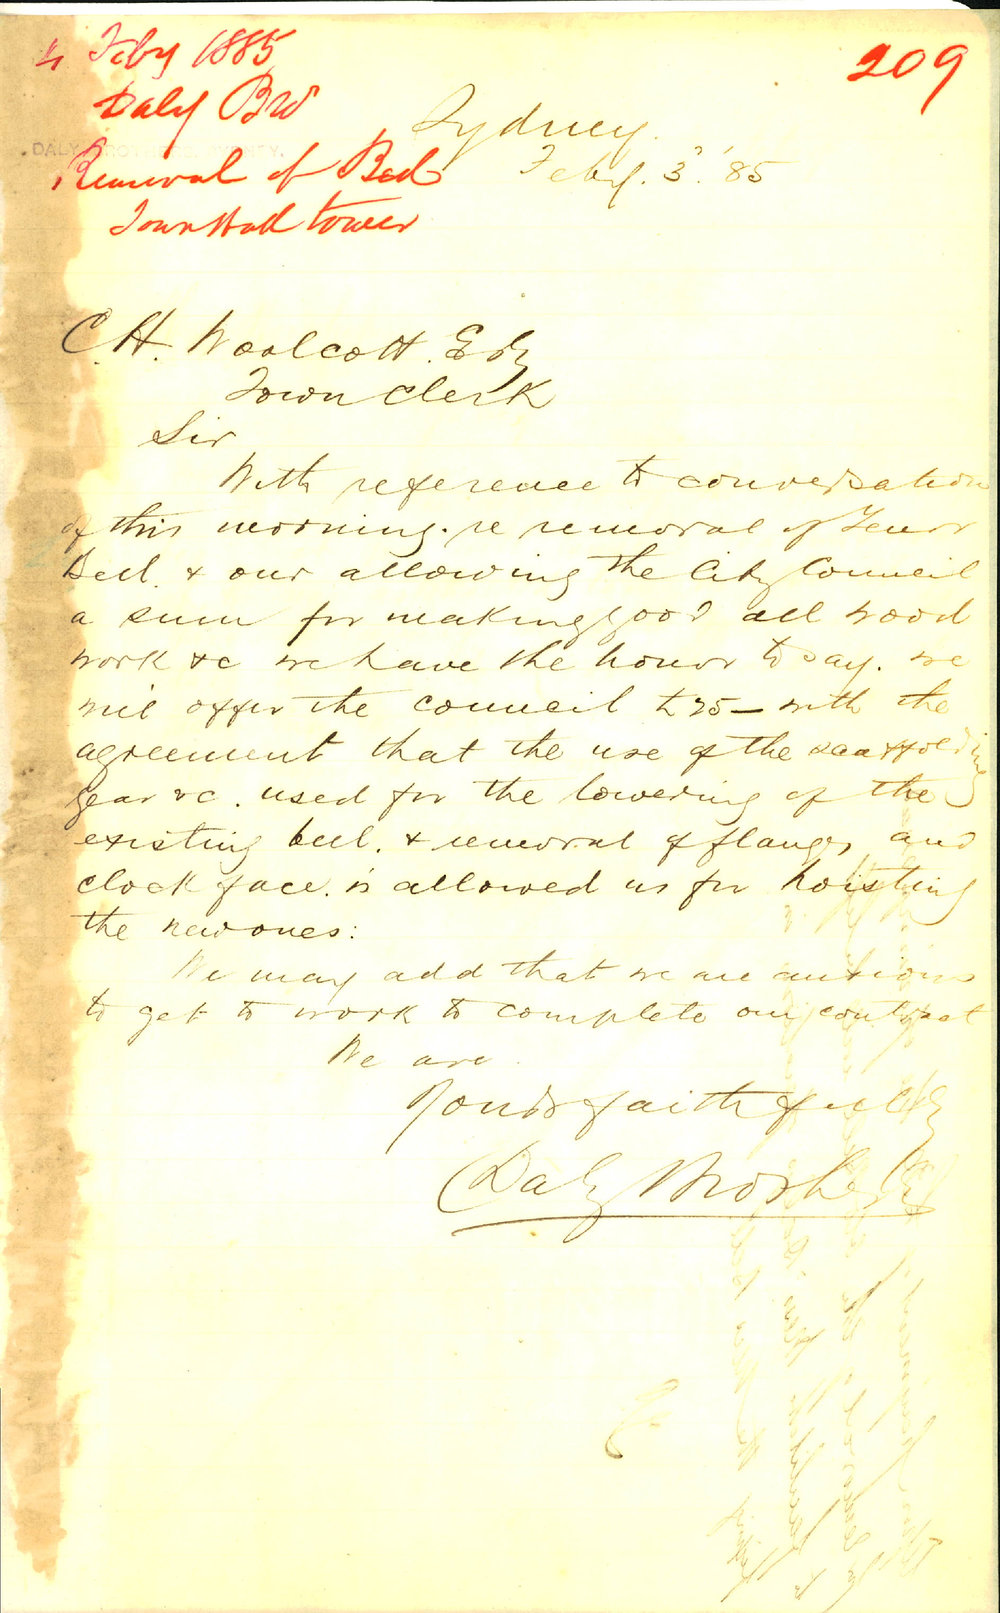 4 Feby 1885
209
Daly Bros
DALY BROTHERS, SYDNEY.
Removal of Bell
Town Hall tower
Sydney.
Feby. 3. '85
C. H. Woolcott. Esq
Town Clerk
Sir
With reference to conversation
of this morning. re removal of Tenor
Bell. & our allowing the City Council
a sum for making good all wood
work &c we have the honor to say. we
will offer the council £25 — with the
agreement that the use of the scaffolding
gear &c. used for the lowering of the
existing bell. & removal of flanges and
clock face. is allowed us for hoisting
the new ones:
We may add that we are anxious
to get to work to complete our contract
We are
Yours faithfully
Daly Brothers